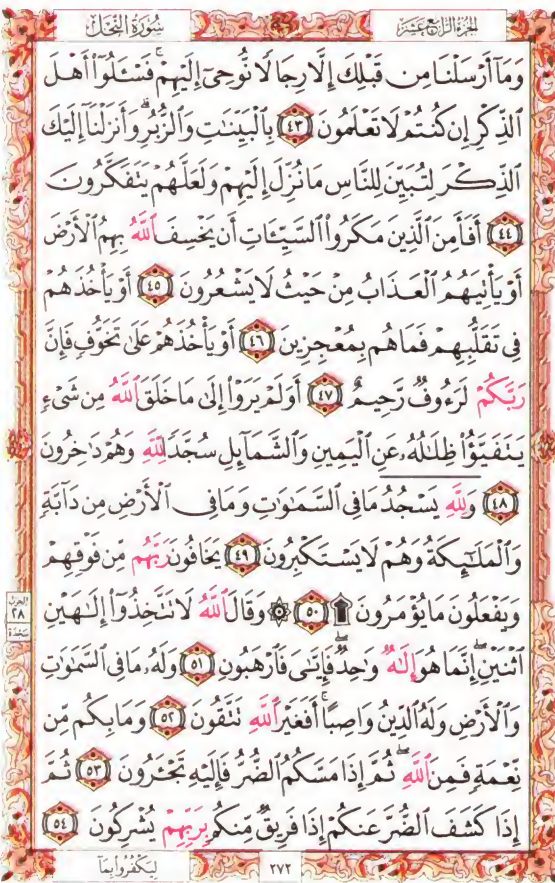 سُورَةُ النَّحْلِ الجُزْءُ الرَّابِعَ عَشَرَ
وَمَآ أَرْسَلْنَا مِن قَبْلِكَ إِلَّا رِجَالًا نُّوحِىٓ إِلَيْهِمْ ۚ فَسْـَٔلُوٓا۟ أَهْلَ
ٱلذِّكْرِ إِن كُنتُمْ لَا تَعْلَمُونَ ٤٣ بِٱلْبَيِّنَـٰتِ وَٱلزُّبُرِ ۗ وَأَنزَلْنَآ إِلَيْكَ
ٱلذِّكْرَ لِتُبَيِّنَ لِلنَّاسِ مَا نُزِّلَ إِلَيْهِمْ وَلَعَلَّهُمْ يَتَفَكَّرُونَ
٤٤ أَفَأَمِنَ ٱلَّذِينَ مَكَرُوا۟ ٱلسَّيِّـَٔاتِ أَن يَخْسِفَ ٱللَّهُ بِهِمُ ٱلْأَرْضَ
أَوْ يَأْتِيَهُمُ ٱلْعَذَابُ مِنْ حَيْثُ لَا يَشْعُرُونَ ٤٥ أَوْ يَأْخُذَهُمْ
فِى تَقَلُّبِهِمْ فَمَا هُم بِمُعْجِزِينَ ٤٦ أَوْ يَأْخُذَهُمْ عَلَىٰ تَخَوُّفٍ فَإِنَّ
رَبَّكُمْ لَرَءُوفٌ رَّحِيمٌ ٤٧ أَوَلَمْ يَرَوْا۟ إِلَىٰ مَا خَلَقَ ٱللَّهُ مِن شَىْءٍ
يَتَفَيَّؤُا۟ ظِلَـٰلُهُۥ عَنِ ٱلْيَمِينِ وَٱلشَّمَآئِلِ سُجَّدًا لِّلَّهِ وَهُمْ دَٰخِرُونَ
٤٨ وَلِلَّهِ يَسْجُدُ مَا فِى ٱلسَّمَـٰوَٰتِ وَمَا فِى ٱلْأَرْضِ مِن دَآبَّةٍ
وَٱلْمَلَـٰٓئِكَةُ وَهُمْ لَا يَسْتَكْبِرُونَ ٤٩ يَخَافُونَ رَبَّهُم مِّن فَوْقِهِمْ
وَيَفْعَلُونَ مَا يُؤْمَرُونَ ۩ ٥٠ ۞ وَقَالَ ٱللَّهُ لَا تَتَّخِذُوٓا۟ إِلَـٰهَيْنِ
الحزب ٢٨ سَجْدَة
ٱثْنَيْنِ ۖ إِنَّمَا هُوَ إِلَـٰهٌ وَٰحِدٌ ۖ فَإِيَّـٰىَ فَٱرْهَبُونِ ٥١ وَلَهُۥ مَا فِى ٱلسَّمَـٰوَٰتِ
وَٱلْأَرْضِ وَلَهُ ٱلدِّينُ وَاصِبًا ۚ أَفَغَيْرَ ٱللَّهِ تَتَّقُونَ ٥٢ وَمَا بِكُم مِّن
نِّعْمَةٍ فَمِنَ ٱللَّهِ ۖ ثُمَّ إِذَا مَسَّكُمُ ٱلضُّرُّ فَإِلَيْهِ تَجْـَٔرُونَ ٥٣ ثُمَّ
إِذَا كَشَفَ ٱلضُّرَّ عَنكُمْ إِذَا فَرِيقٌ مِّنكُم بِرَبِّهِمْ يُشْرِكُونَ ٥٤
لِيَكْفُرُوا۟ بِمَآ ٢٧٢